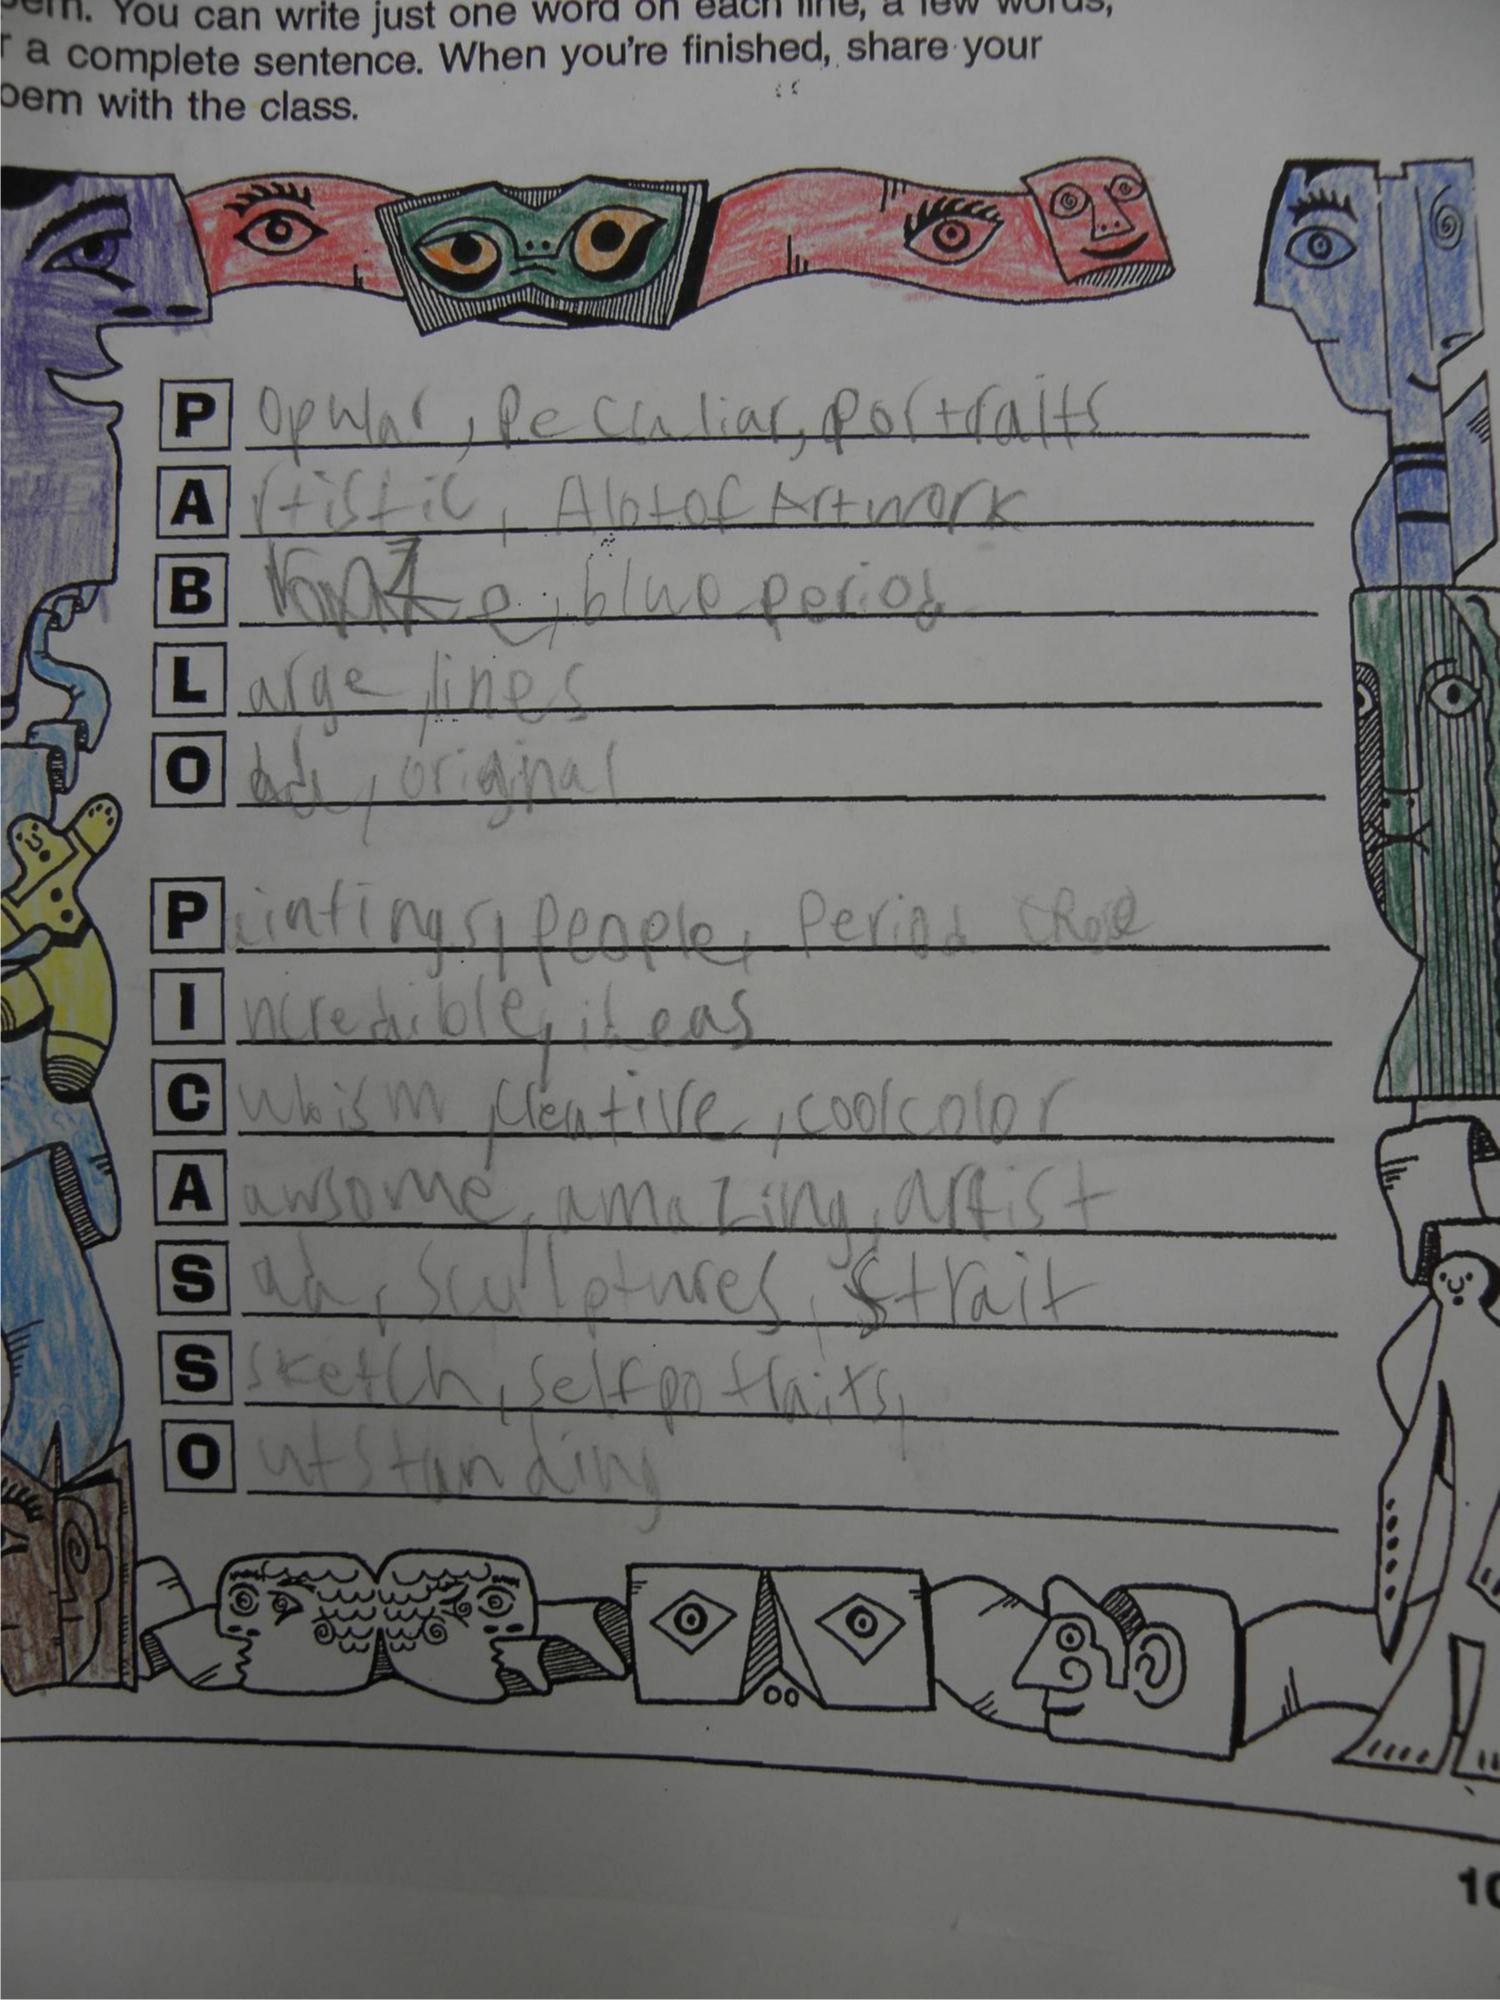 You can write just one word on each line, a few words,
a complete sentence. When you're finished, share your
with the class.
P opular, Peculiar, portraits
A rtistic, Alot of Artwork
B ronze, blue period
L arge, lines
O dd, original
P aintings, people, Period (Rose
I ncredible, ideas
C ubism, creative, cool color
A awsome, amazing, artist
S ad, sculptures, strait
S sketch, self portraits,
O utstanding